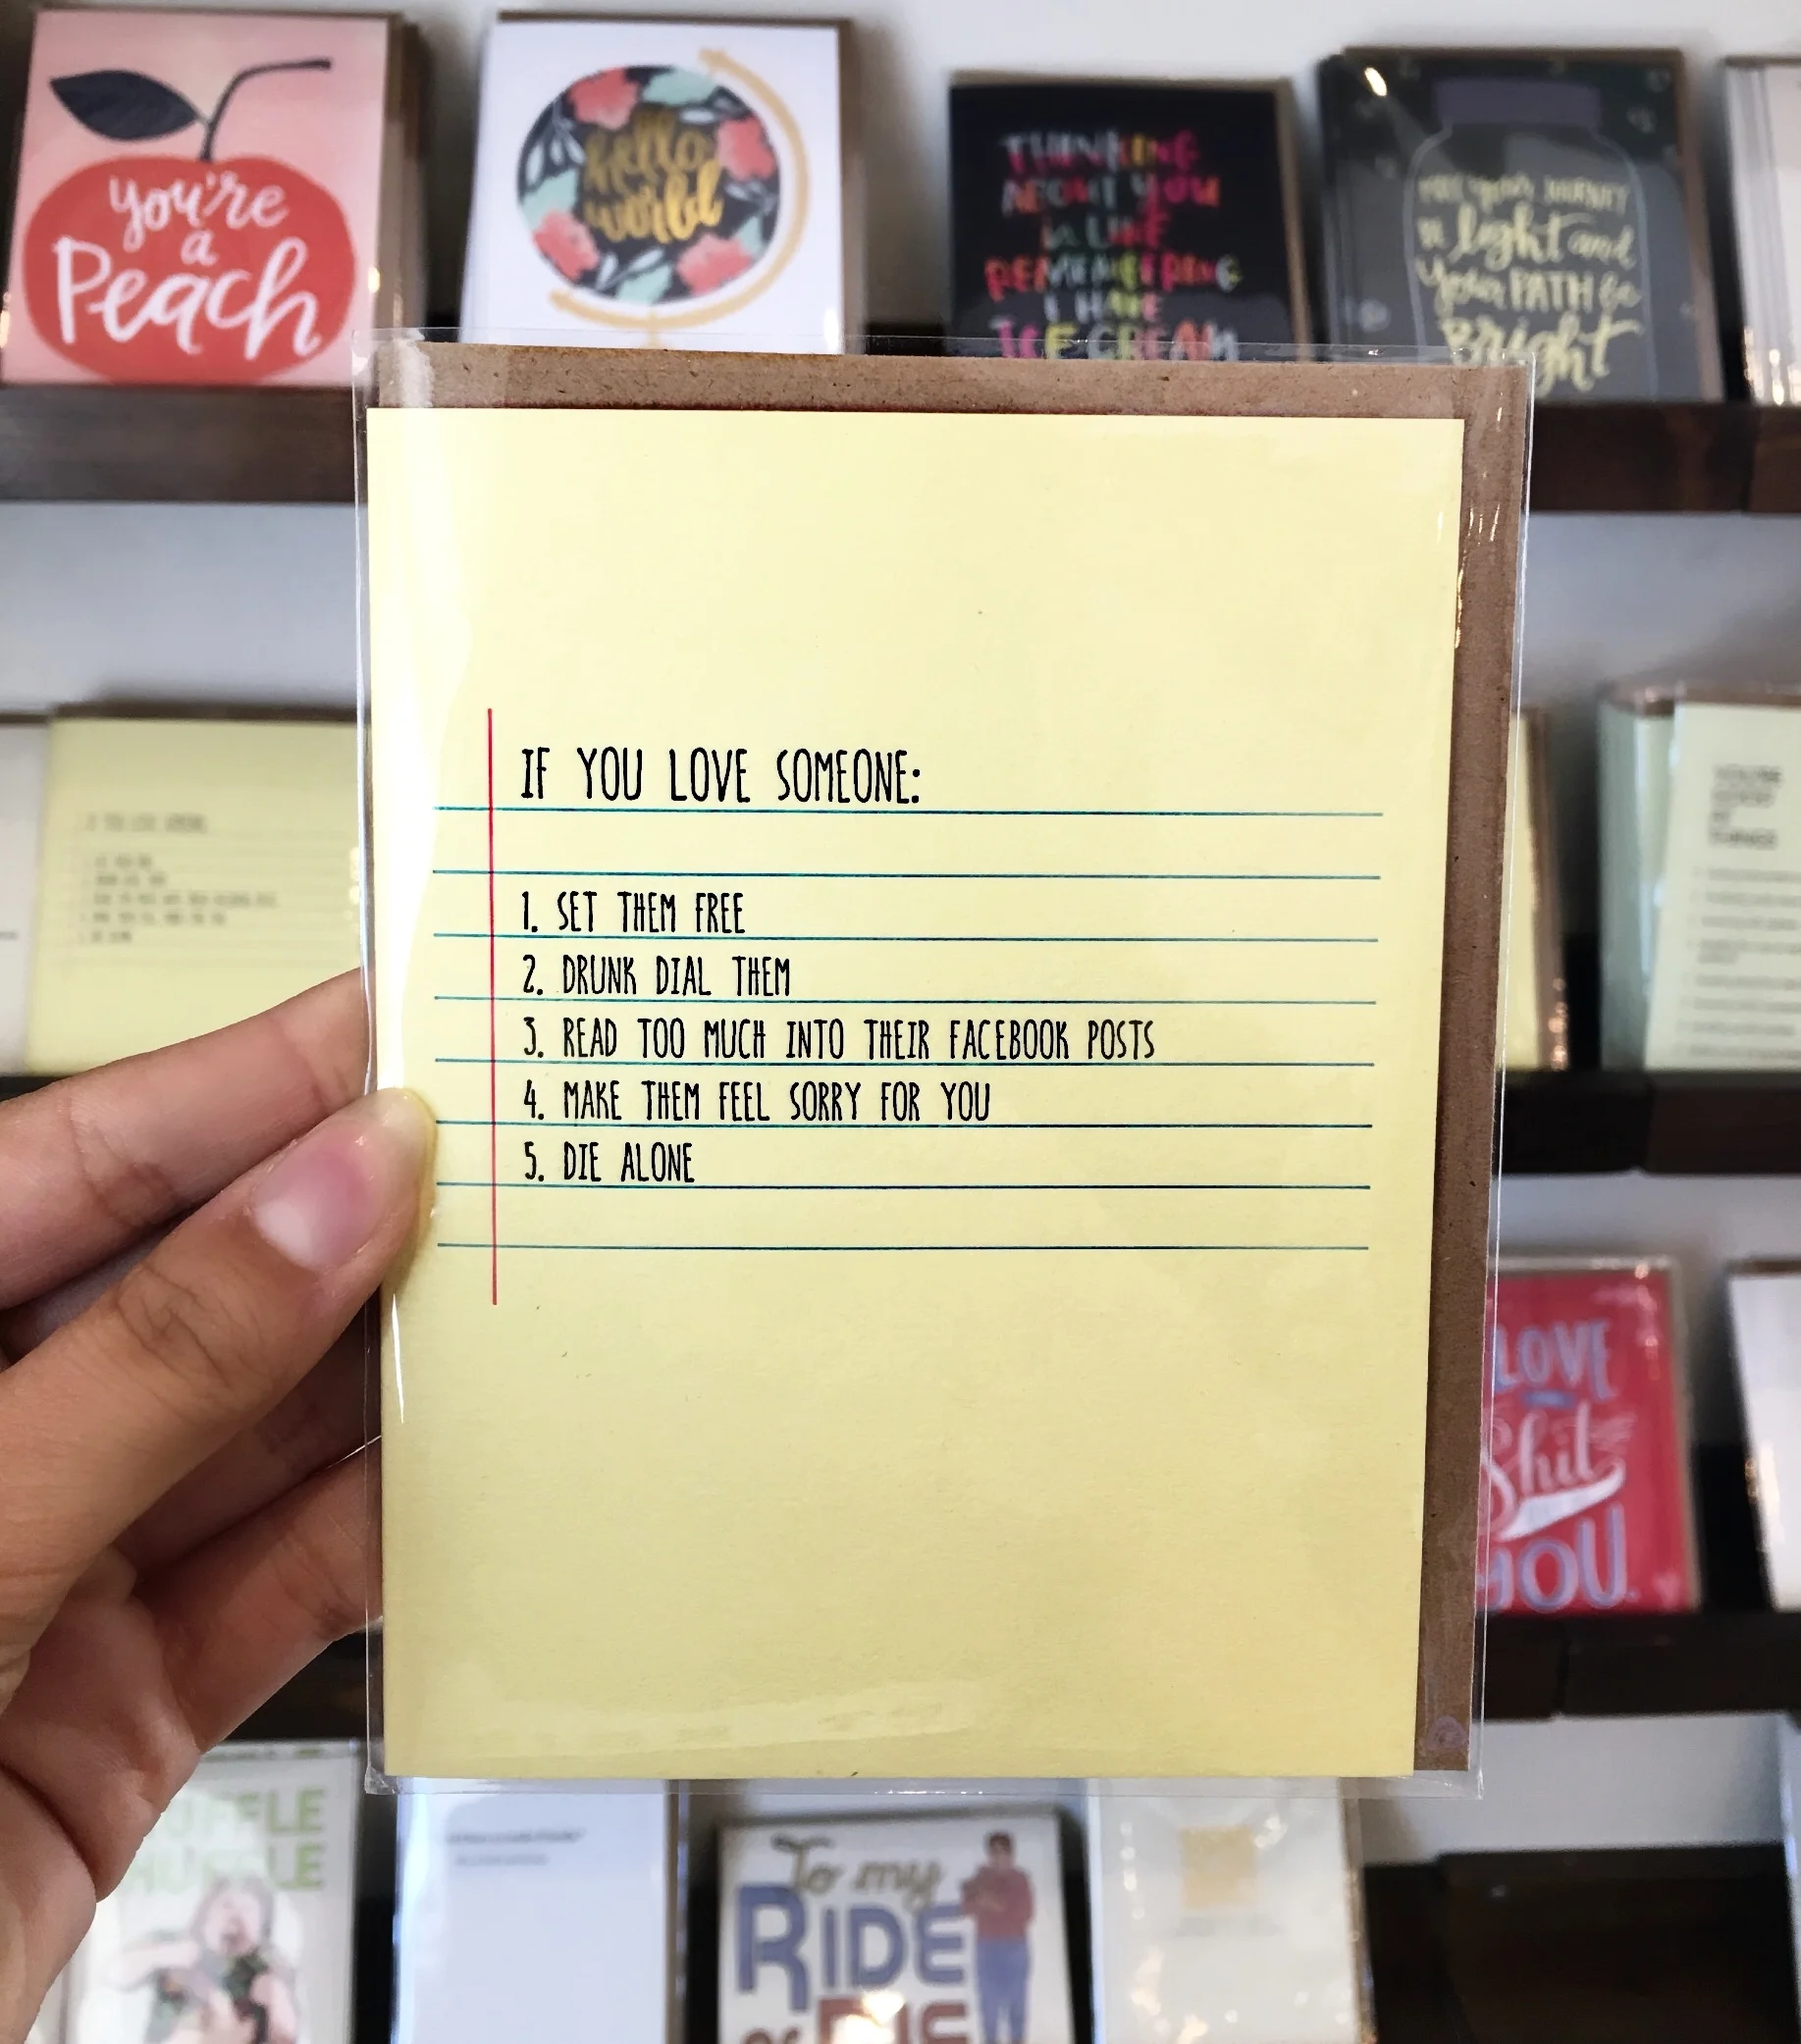 you're
a
Peach
hello
world
THINKING
ABOUT YOU
is LIKE
REMEMBERING
I HAVE
ICE CREAM
MAY YOUR JOURNEY
BE light and
your PATH be
Bright
IF YOU LOVE SOMEONE:
1. SET THEM FREE
2. DRUNK DIAL THEM
3. READ TOO MUCH INTO THEIR FACEBOOK POSTS
4. MAKE THEM FEEL SORRY FOR YOU
5. DIE ALONE
IF YOU LOVE SOMEONE:
THINGS
LOVE
Shit
YOU.
To my
RIDE
or DIE